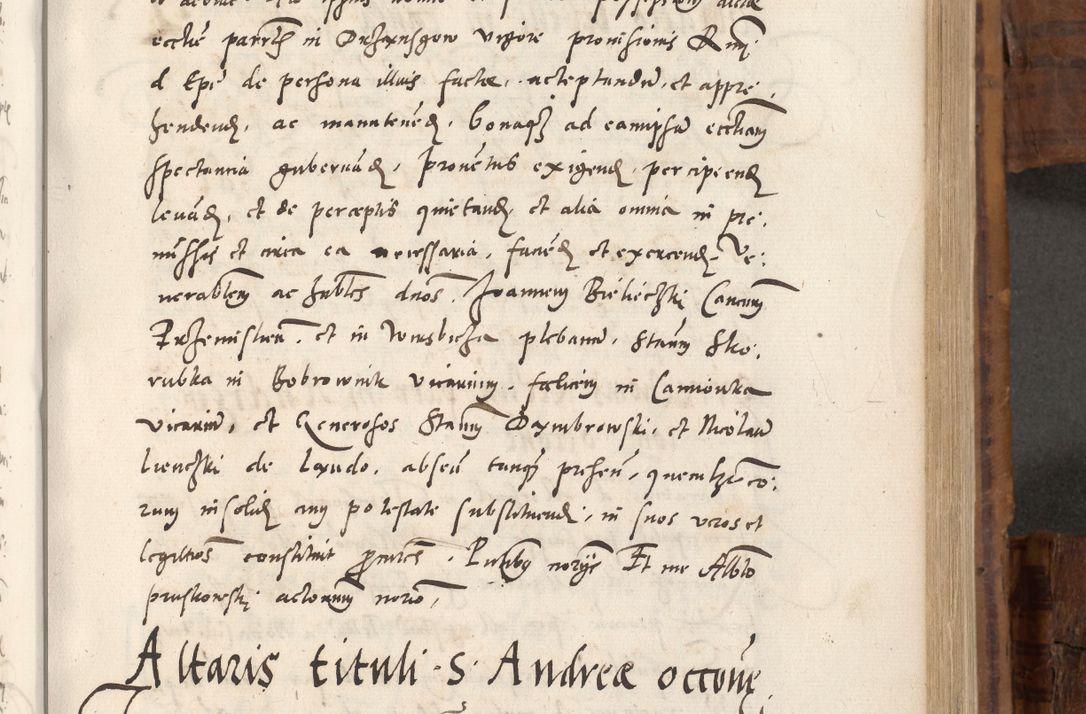 eccłie parrłis in Orzensgow vigore prouisionis Rmi
d Epi de persona illius factae, acceptandu, et appre,
hendend, ac manutened, bonaq ad eamipsa ecctiam
spectantia gubernad, prouetus exigend, percipiend
leuad, et de perceptis quietand, et alia omnia in pre,
missis et circa ea necessaria, faciend et exercend Ve,
nerabilem ac hnbles dnos, Joannem Bielieczki Cancum
Przemislien, et in Worsbicza plebanu, Stanm Sko,
rubka in Bobrownik vicarium, foelicem in Camionka
vicariu, et Generosos Stanm Dambrowski, et Nicolau
lienczki de Lando, absen tanq presen, quemlz eo,
rum in solid cum potestate substituendi, in suos veros et
legittos constituit prores, Putibus norijs Et me Albto
pruskowski actorum norio,
Altaris tituli S Andreae